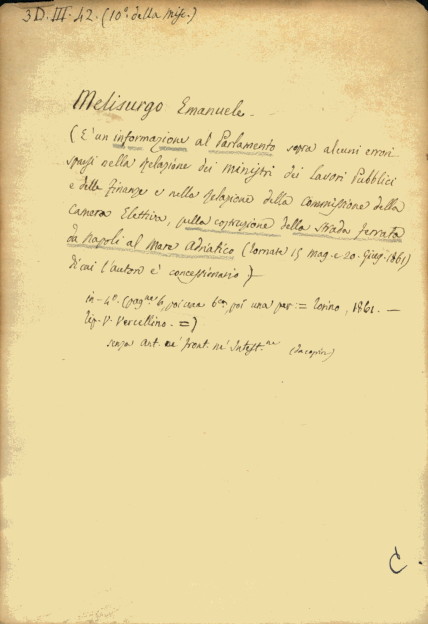 3 D. III. 42. (10º. della Misc.)
Melisurgo Emanuele.
(E' un informazione al Parlamento sopra alcuni errori
sparsi nella Relazione dei Ministri dei Lavori Pubblici
e delle Finanze e nella Relazione della Commissione della
Camera Elettiva, sulla costruzione della Strada ferrata
da Napoli al Mare Adriatico (Tornate 15 mag. e 20. Giug. 1861)
di cui l'autore è concessionario)
in-4º. (pag.ne 6, poi una 6.bis, poi una par: = Torino, 1861. —
Tip. V. Vercellino. =)
senza ant. nè front. nè Intest.ne
C.